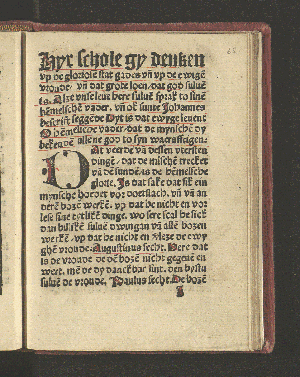 Hyr schole gy dencken
vp de gloriose stat gades vñ vp de ewigē
vroude. vñ dat grote loen. dat god suluē
is. Alze vnse leue here suluē sprak to sinē
hēmelschē vader. vñ ok sunte Johannes
bescrift seggēde Dyt is dat ewyge leuent
O hēmelsche vader. dat de mynschē dy
bekenē allene god to syn warafftigen.
Dat veerde vā dessen veersten
dingē. dat de mīschē trecket
vā desundē is de hēmelsche
glorie. Js dat sake dat sik ein
mynsche hodet vor doetslach. vñ vā an
derē bozē werkē. vp dat he nicht en vor
lese sine tytlikē dinge. wo sere scal he sick
dan billikē suluē dwingan vā allē bozen
werkē. vp dat he nicht en vleze de ewy
ghē vroude. Augustinus secht. Here dat
is de vroude de dē bozē nicht gegeuē en
wert. mē de dy danckbar sint. den bystu
suluē de vroude. Paulus secht. De bozē